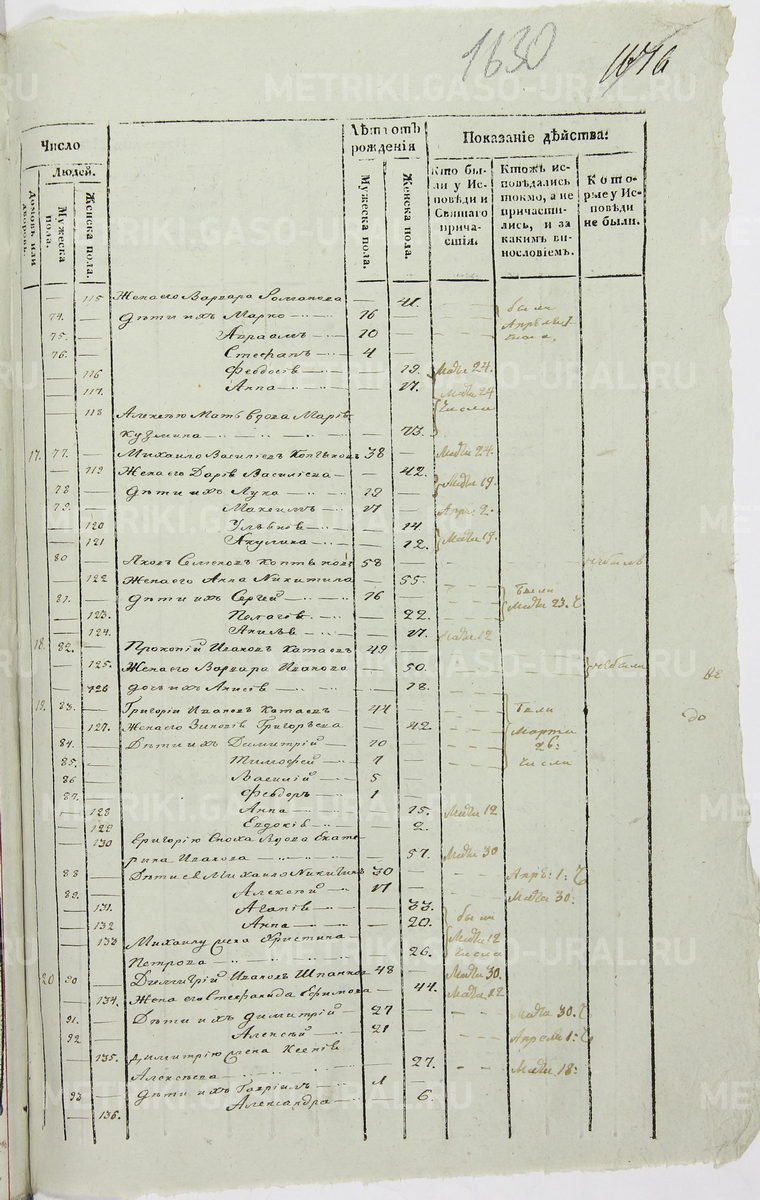 1630
Число
Людей.
Домовъ или дворовъ.
Мужеска пола.
Женска пола.
Лѣтъ отъ рожденія
Мужеска пола.
Женска пола.
Показаніе дѣйства:
Кто были у Исповѣди и Святаго причастія.
Ктожѣ исповѣдались токмо, а не причастились, и за какимъ винословіемъ.
Которые у Исповѣди не были.
115 Жена его Варвара Романова — 41.
74. Дѣти ихъ Марко — 16 были
75. Авраамъ — 10
76. Стефанъ — 4
116 Феодосія — 19. Марта 24.
117. Анна — 17. Марта 24 числа
118 Алексѣю Мать вдова Марія
Кузмина — 73.
17. 77. Михаило Василіевъ — 38 Марта 24.
119 Жена его Дарія Василіева — 42.
78 Дѣти ихъ Лука — 19 Марта 19.
79. Максимъ — 17 Апрѣ: 2.
120 Ульянія — 14
121 Акулина — 12. Марта 19.
80 Яковъ Семеновъ — 58 не былъ
122 Жена его Анна Никитина — 55.
81. Дѣти ихъ Сергей — 16 были
123. Пелагія — 22. Марта 23. Ч
124. — 17. Марта 12
18. 82. Прокопій Ивановъ Катаевъ — 49
125. Жена его Варвара Иванова — 50. не были
126 дочь ихъ Анисія — 18.
19. 83. Григорій Ивановъ Катаевъ — 44 были
127. Жена его Зиновія Григорьева — 42 Марта 26: числа
84. Дѣти ихъ Димитрій — 10
85. Тимофей — 7
86 Василій — 5
87. Феодоръ — 1
128 Анна — 15. Марта 12
129 Евдокія — 2.
130 Григорію Сноха Вдова Екате
рина Иванова — 57. Марта 30
88 Дѣти ея Михаило Никитинъ 30 Апрѣ: 1: Ч
89. Алексѣй — 17 Марта 30.
131. Агапія — 33.
132 Анна — 20. были
133 Михаилу жена Христина Марта 12
Петрова — 26. числа
20 90 Димитрій Ивановъ — 48 Марта 30.
134. Жена его Стефанида Ефимова — 44. Марта 12
91. Дѣти ихъ Димитрій — 27 Марта 30. Ч
92. Алексѣй — 21 Апрѣля 1: Ч
135. Димитрію жена Ксенія
Алексѣева — 27. Марта 18:
93 Дѣти ихъ Гавріилъ — 1
136. Александра — 6.
METRIKI.GASO-URAL.RU